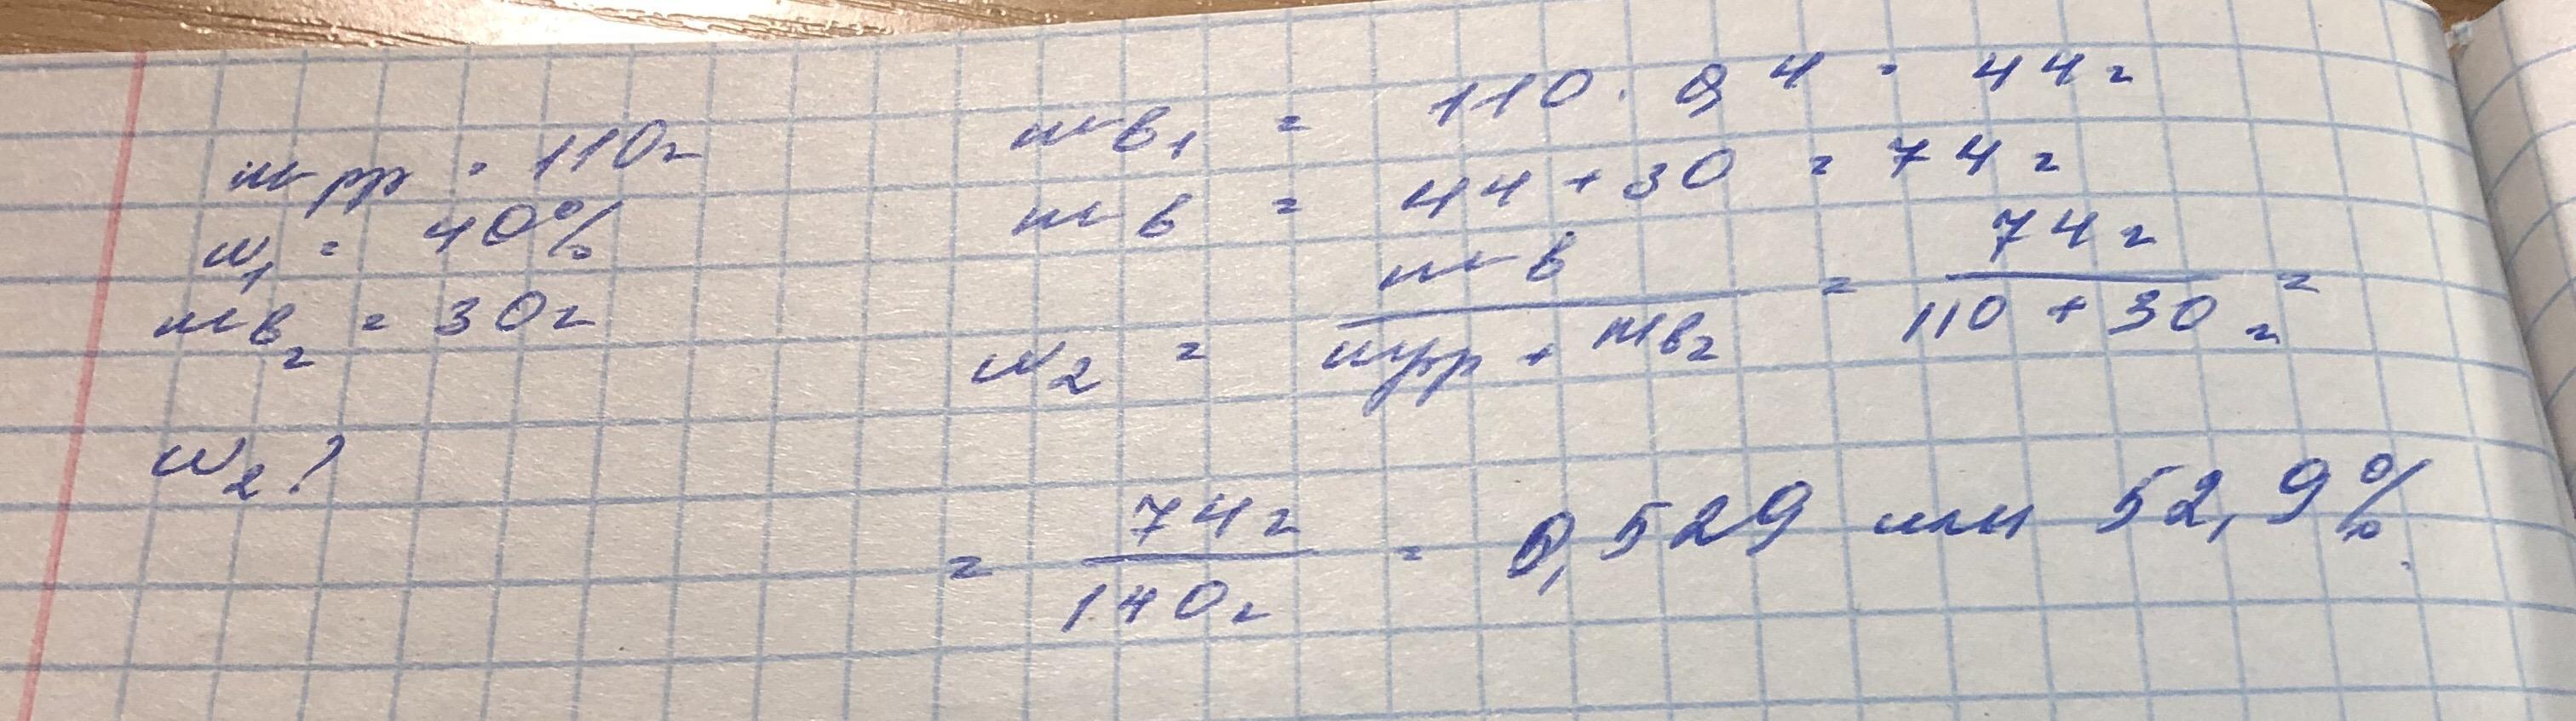 m рр = 110г
w₁ = 40%
m в₂ = 30г
w₂?
m в₁ = 110 · 0,4 = 44г
m в = 44 + 30 = 74г
w₂ = m в / m рр + m в₂ = 74г / 110 + 30г =
= 74г / 140г = 0,529 или 52,9%.